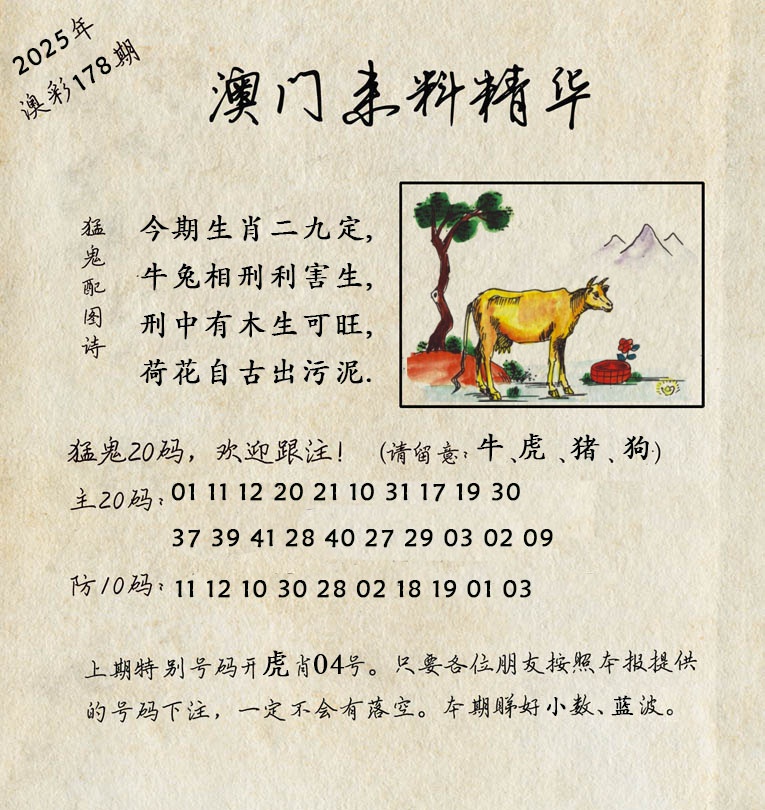 2025年
澳彩178期
澳门来料精华
猛鬼配图诗
今期生肖二九定,
牛兔相刑利害生,
刑中有木生可旺,
荷花自古出污泥.
猛鬼20码，欢迎跟注！（请留意：牛、虎、猪、狗）
主20码：01 11 12 20 21 10 31 17 19 30
37 39 41 28 40 27 29 03 02 09
防10码：11 12 10 30 28 02 18 19 01 03
上期特别号码开虎肖04号。只要各位朋友按照本报提供
的号码下注，一定不会有落空。本期睇好小数、蓝波。